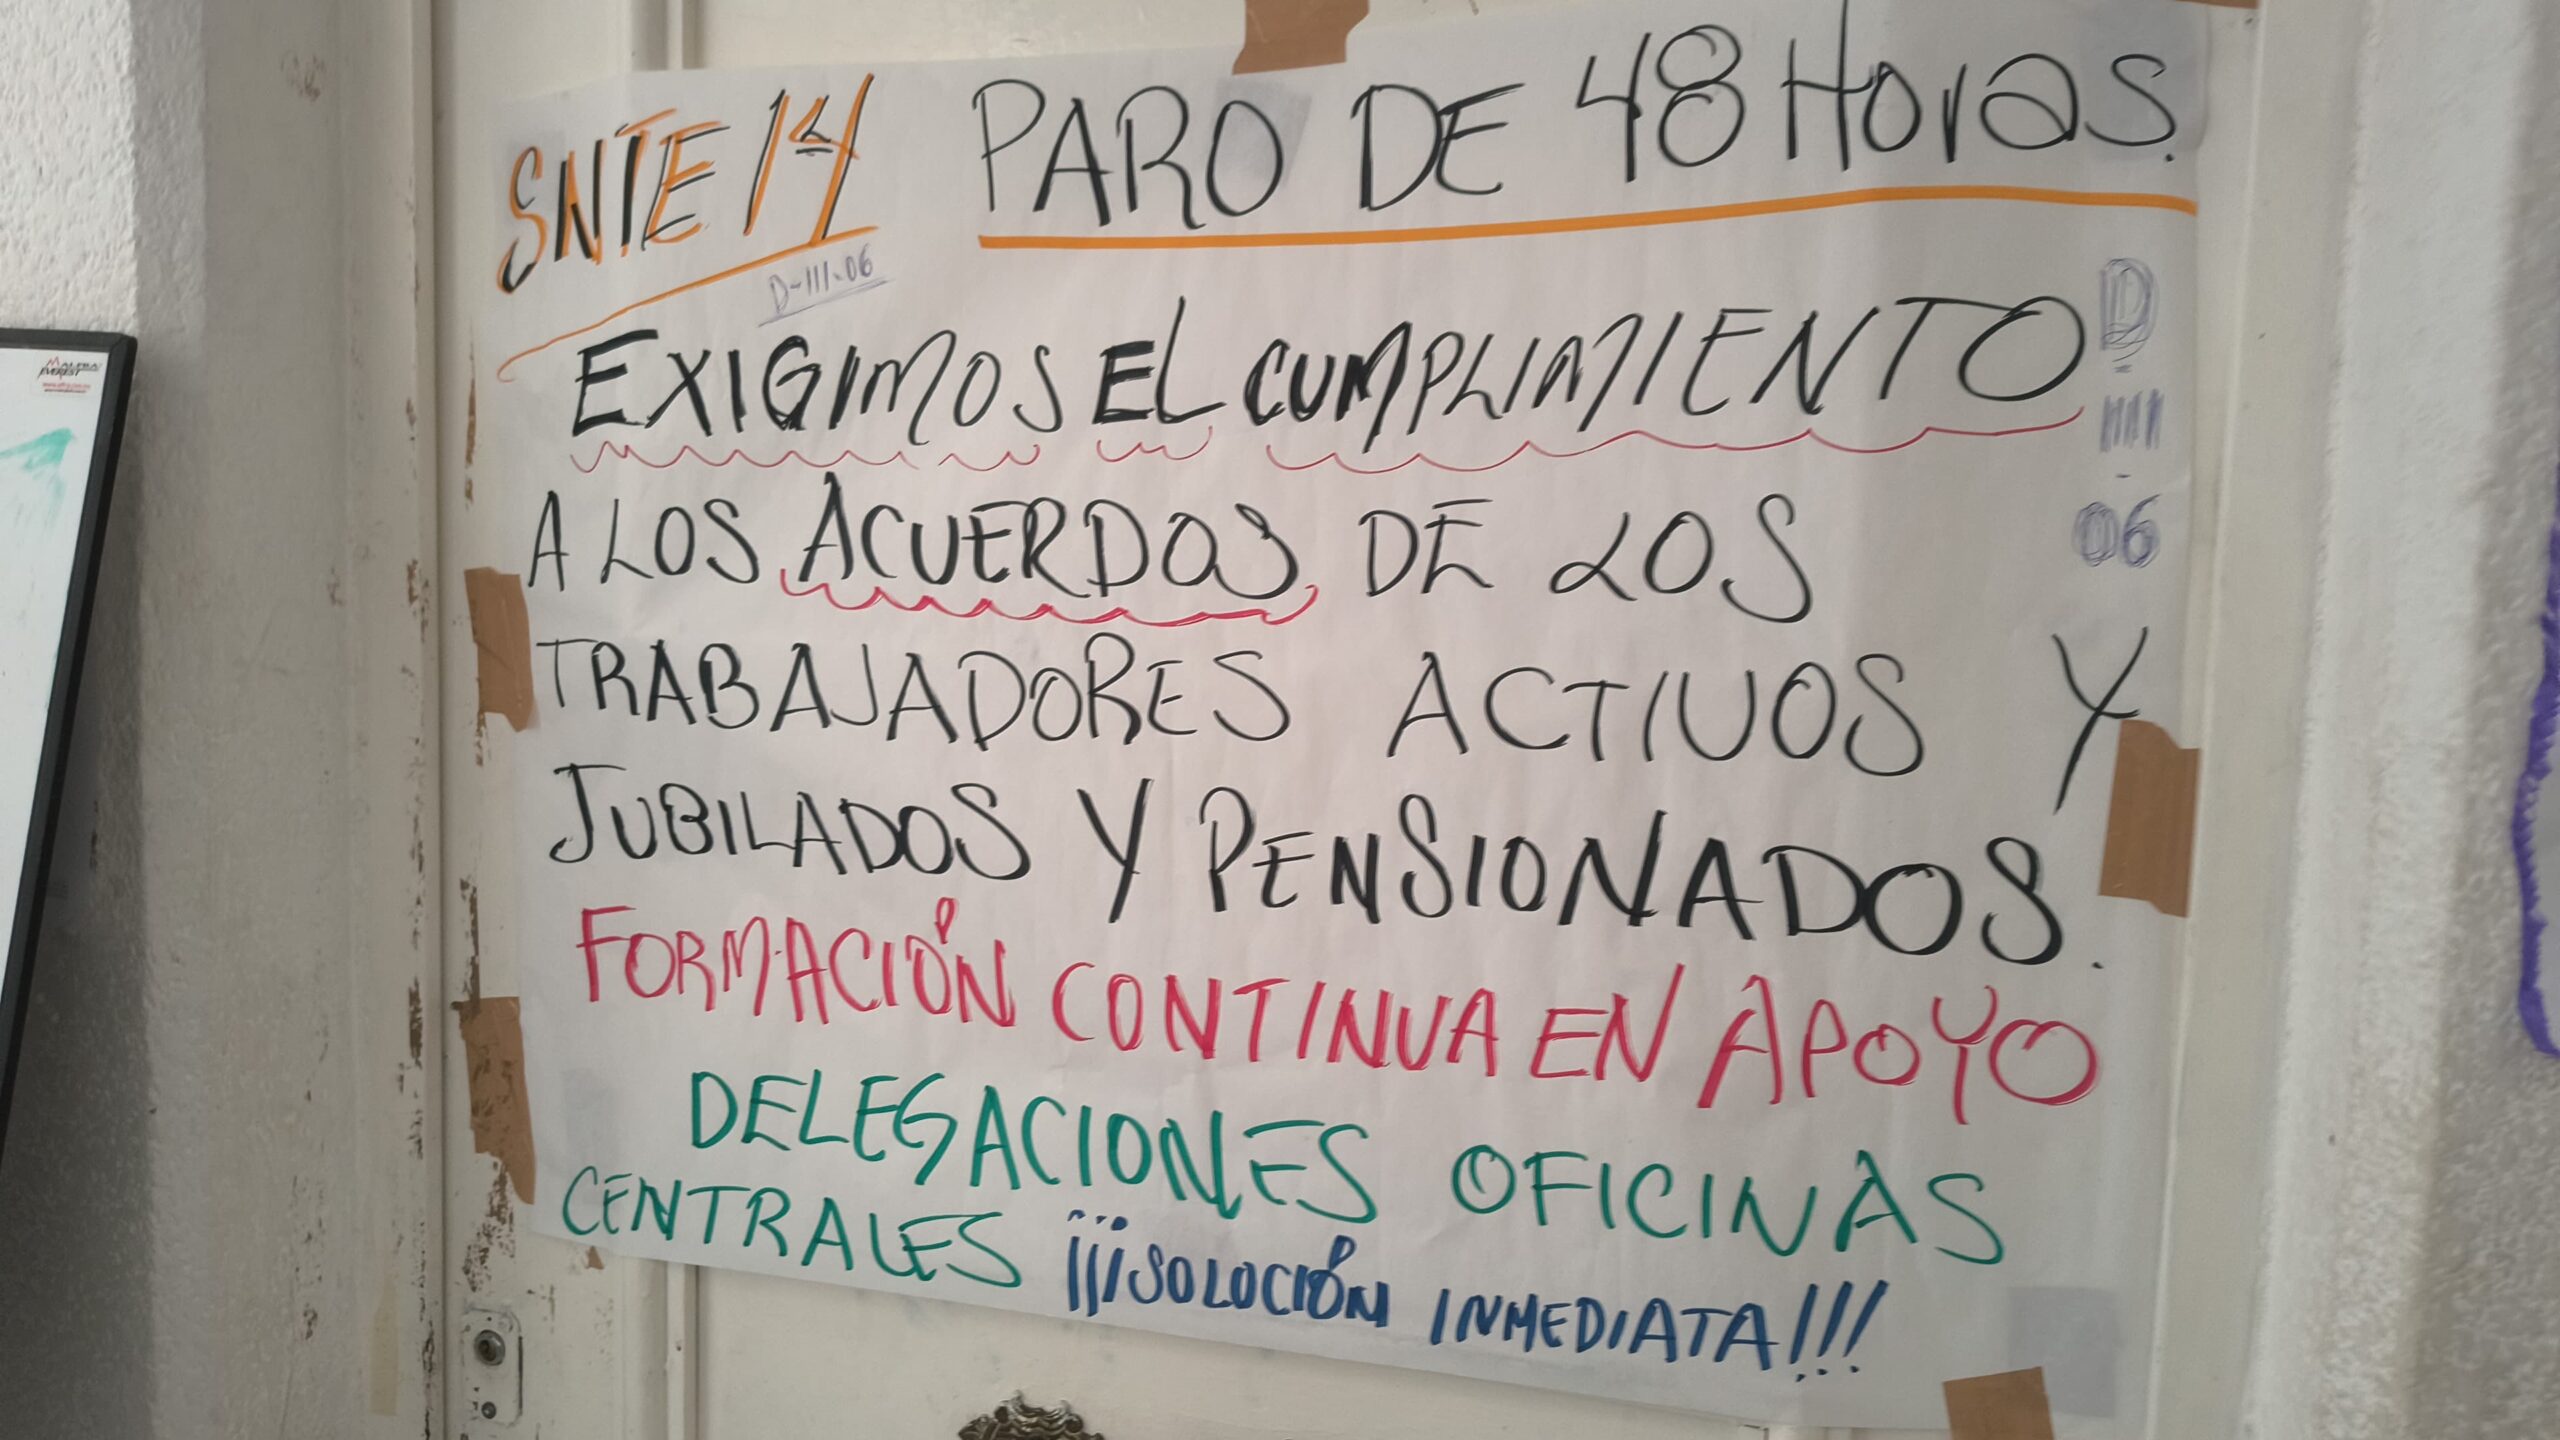 SNTE 14 PARO DE 48 Horas.
D-III-06
EXIGIMOS EL CUMPLIMIENTO
A LOS ACUERDOS DE LOS
TRABAJADORES ACTIVOS Y
JUBILADOS Y PENSIONADOS.
FORMACIÓN CONTINUA EN APOYO
DELEGACIONES OFICINAS
CENTRALES ¡¡¡SOLOCIÓN INMEDIATA!!!
D
III
-
06
ALFRA
EVEREST